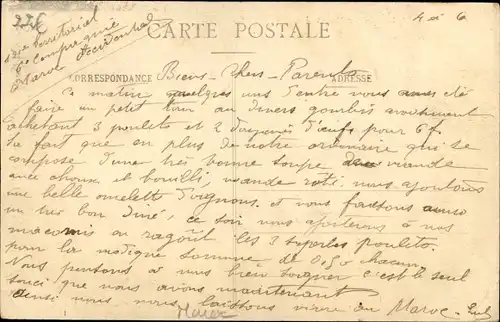 CARTE POSTALE
Territorial
6e Compagnie
Maroc Occidental
CORRESPONDANCE
ADRESSE
Biens Chers Parents
Ce matin quelques uns d'entre vous ont été
faire un petit tour au divers gourbis avoisinant
achetant 3 poulets et 2 douzaines d'œufs pour 6f.
du fait que en plus de notre ordinaire qui se
compose d'une très bonne soupe viande
avec choux et bouilli, viande rôti, nous ajoutons
une belle omelette d'oignons et nous faisons aussi
un très bon diné, ce soir nous ajouterons à nos
macaronis au ragoût les 3 superbes poulets
pour la modique somme de 0,50 chacun.
Nous pensons à nous bien soigner c'est le seul
souci que nous avons maintenant
ainsi nous nous laissons vivre au Maroc.